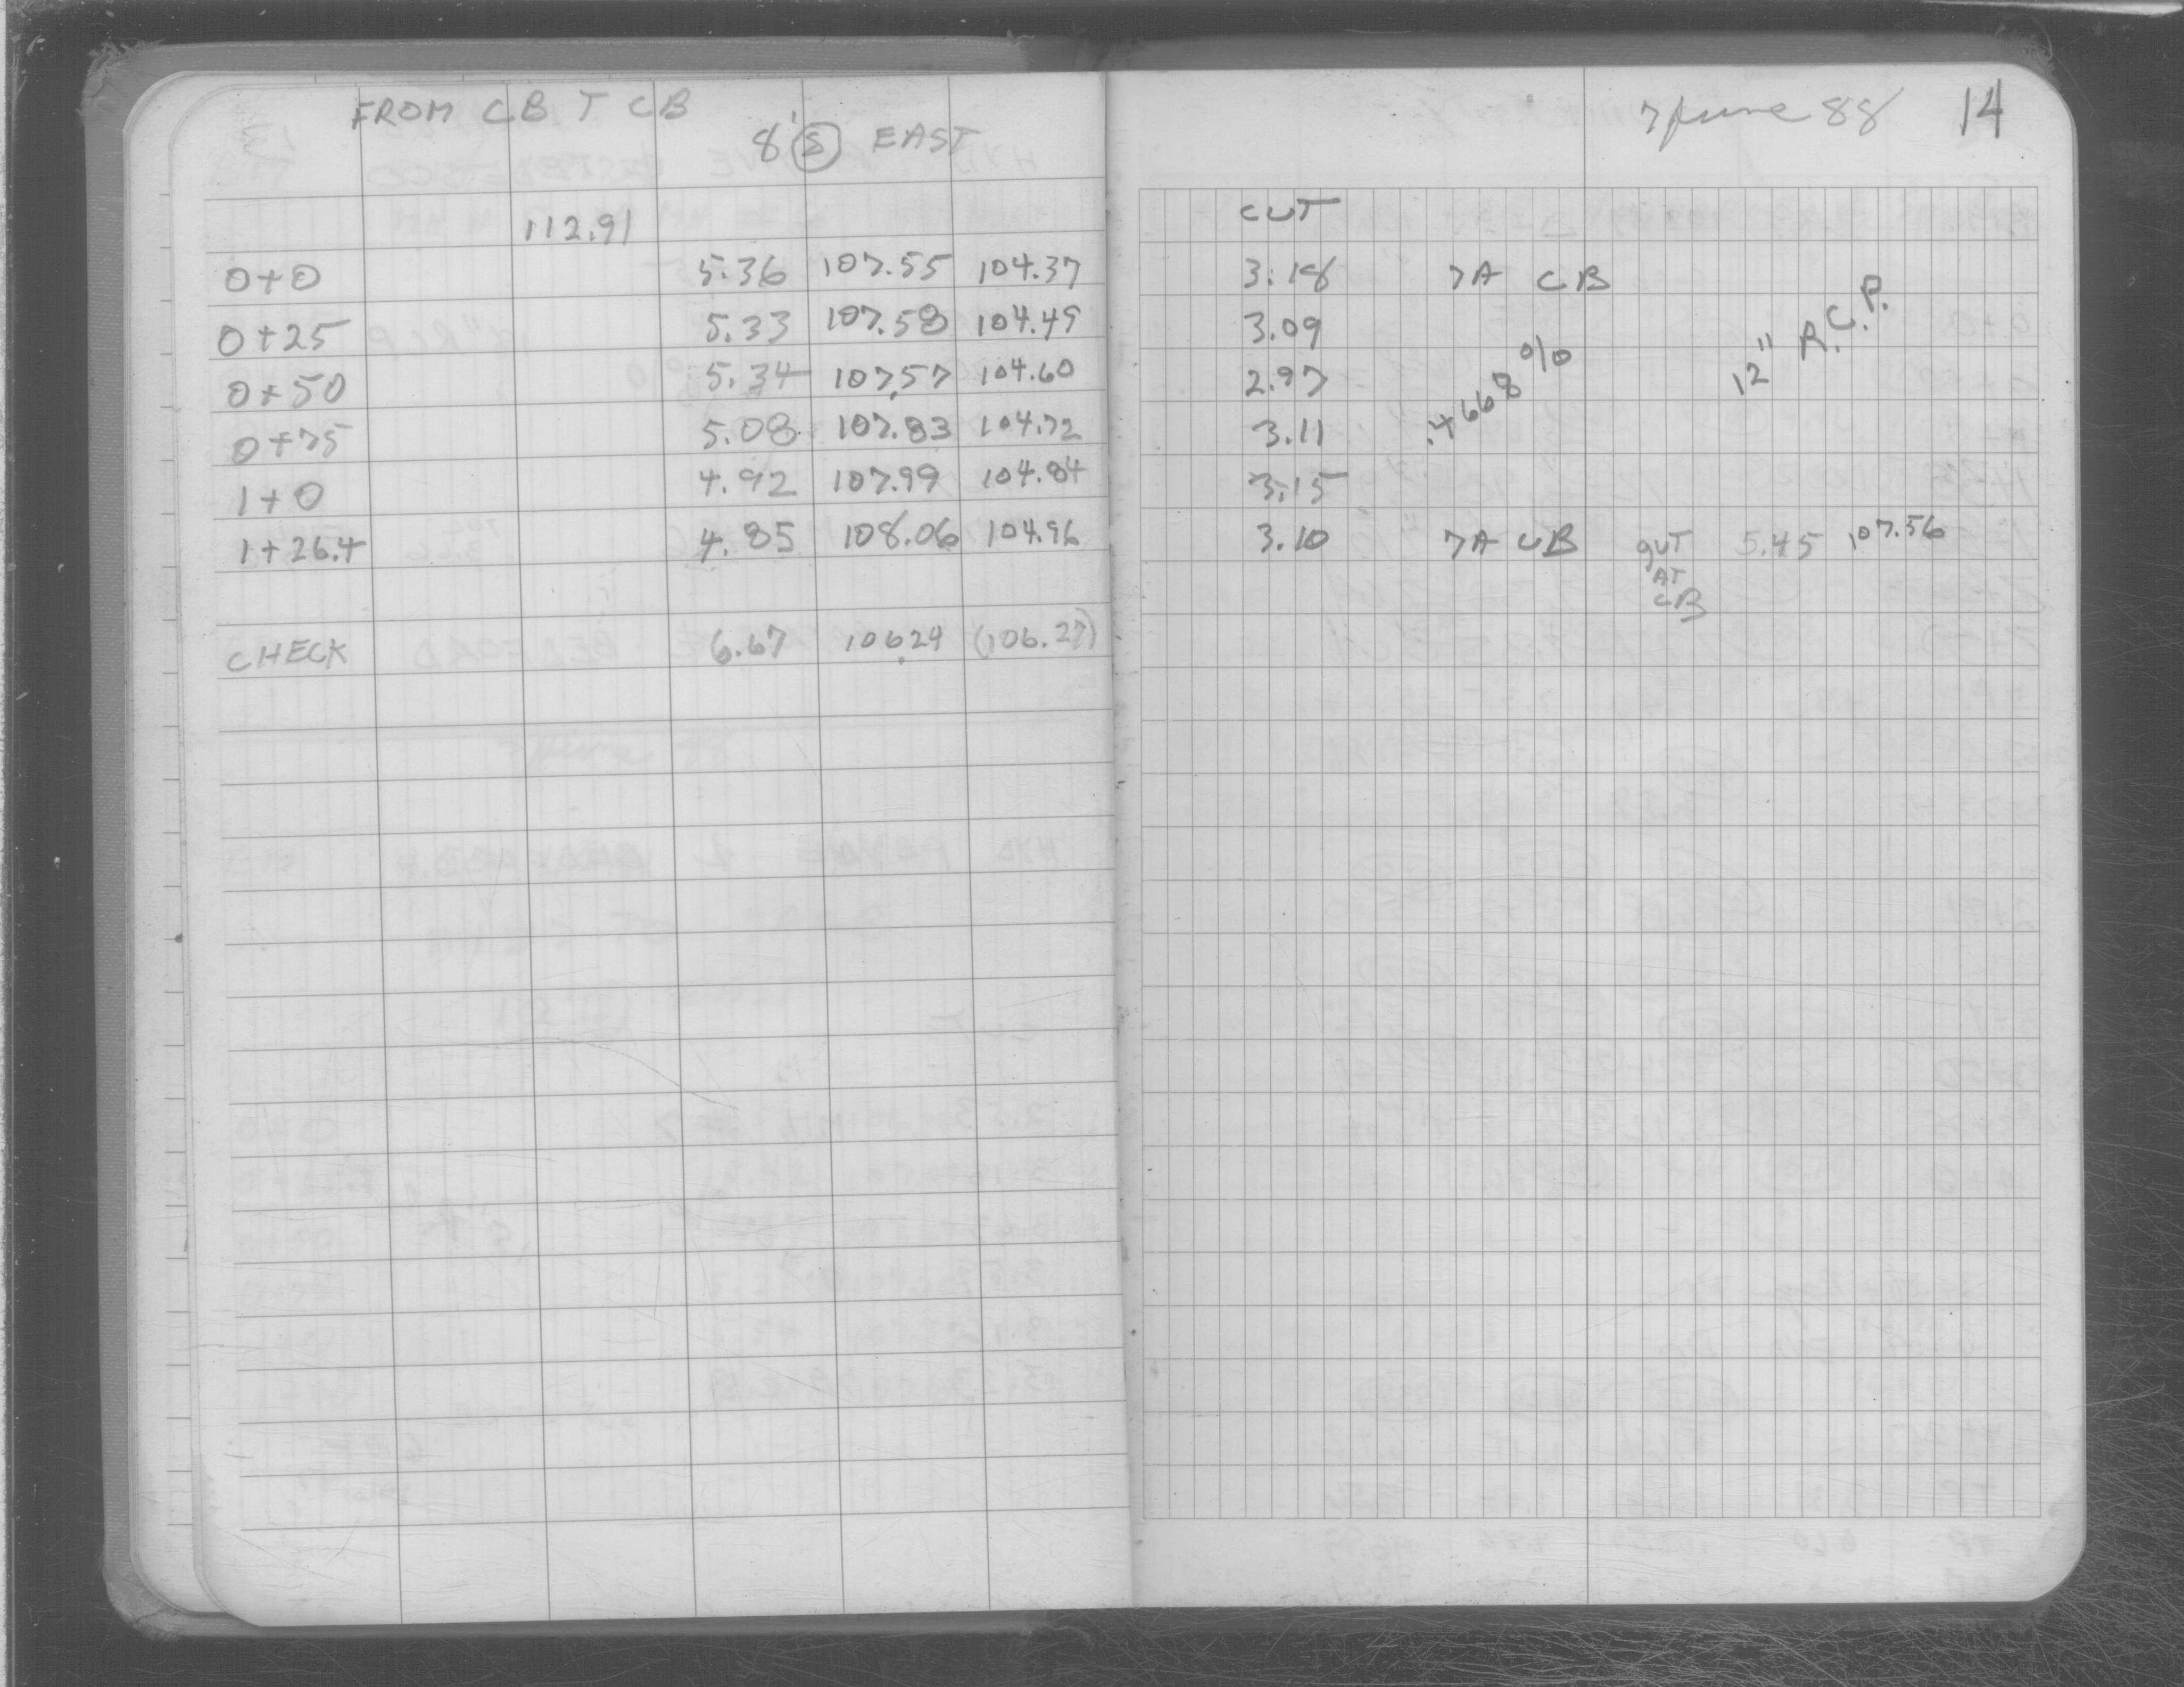 FROM CB T CB
8' S EAST
112.91
0+0 5.36 107.55 104.37
0+25 5.33 107.58 104.49
0+50 5.34 107.57 104.60
0+75 5.08 107.83 104.72
1+0 4.92 107.99 104.84
1+26.4 4.85 108.06 104.96
CHECK 6.67 106.24 (106.27)
7 June 88 14
CUT
3.18 7A CB
3.09
2.97
3.11
3.15
3.10 7A CB gUT 5.45 107.56
AT
CB
.4668 %
12" R.C.P.